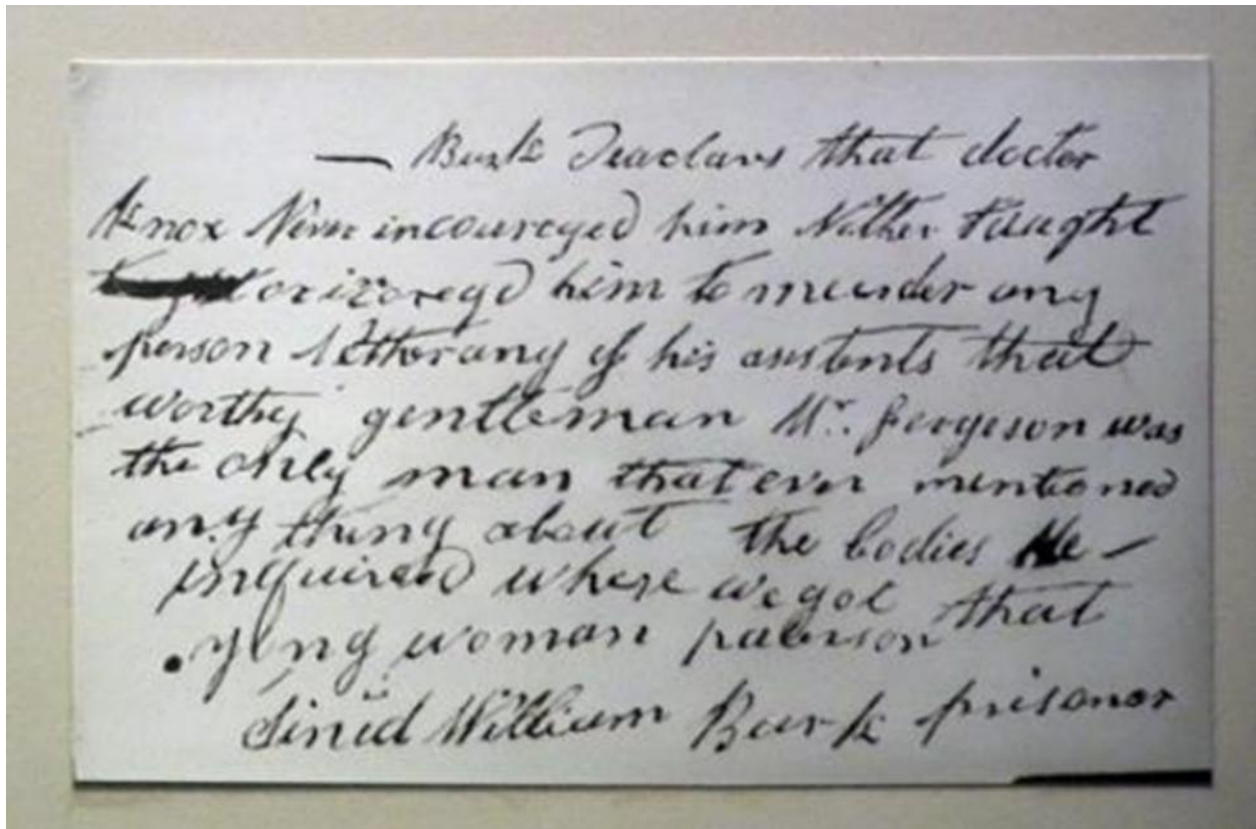 — Burk deaclars that doctor
Knox Never incoureged him Nither taught
or incoregd him to murder any
person Nether any of his asistents that
worthy gentleman Mr. Fergeson was
the only man that ever mentioned
any thing about the bodies He —
inquired where we got that
yong woman paterson
Sined William Burk prisoner